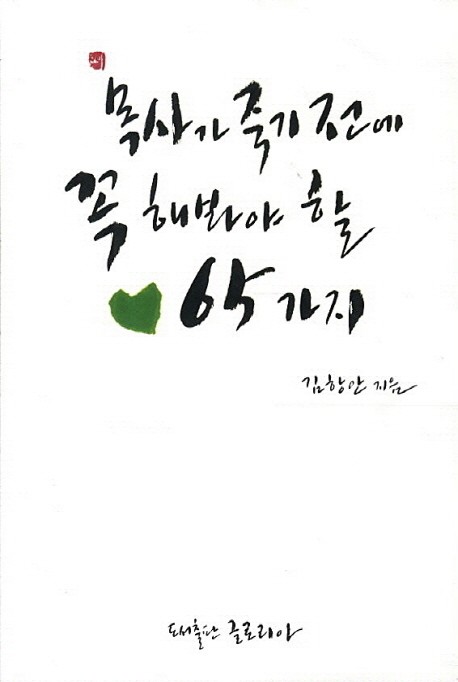 목사가 죽기 전에
꼭 해봐야 할
65 가지
김항안 지음
도서출판 글로리아